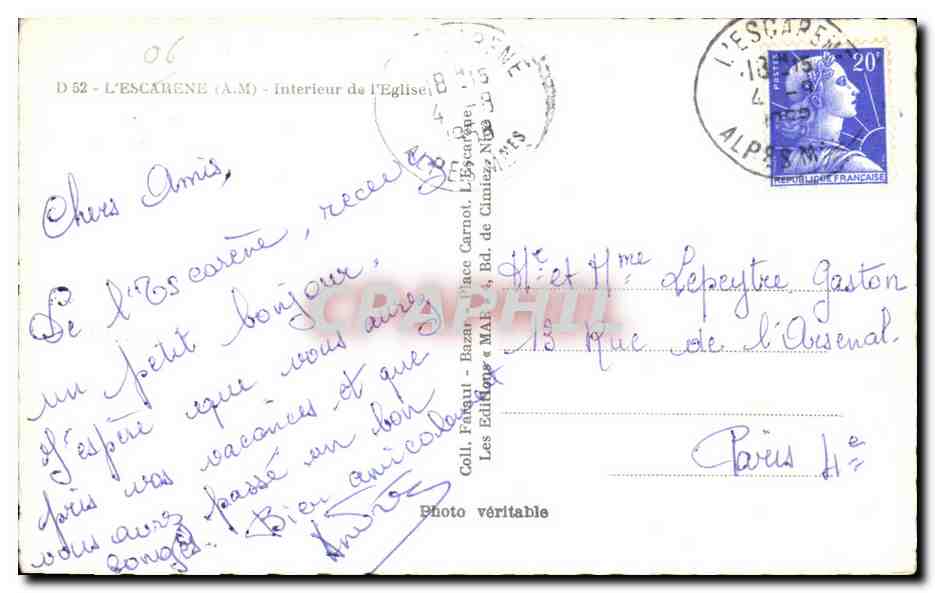 06
D 52 - L'ESCARENE (A.-M) - Interieur de l'Eglise
L'ESCARENE
18 H 15
4 - 9
ALPES MMES
L'ESCARENE
18 H 15
4 - 9
ALPES M
POSTES
20F
REPUBLIQUE FRANÇAISE
Chers Amis,
De l'Escarène, recevez
un petit bonjour.
J'espère que vous aurez
pris vos vacances et que
vous aurez passé un bon
congés. Bien amicalement
Coll. Faraut - Bazar Place Carnot, L'Escarène
Les Editions « MAR », Bd. de Cimiez, Nice
Mr et Mme Lepeytre Gaston
13 Rue de l'Arsenal.
Paris 4e
Photo véritable
CPAPHIL